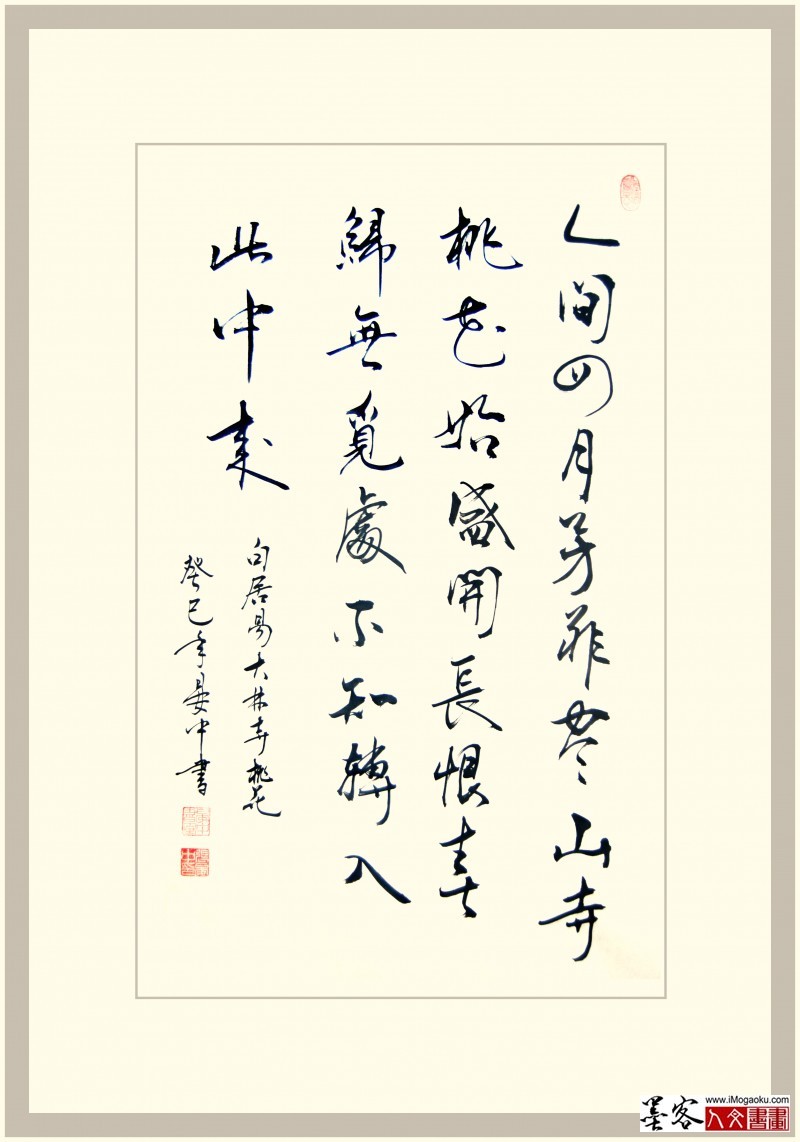 人間四月芳菲盡山寺
桃花始盛開長恨春
歸無覓處不知轉入
此中來
白居易大林寺桃花
癸巳年中書
墨客
www.iMogaoku.com
人文書畫